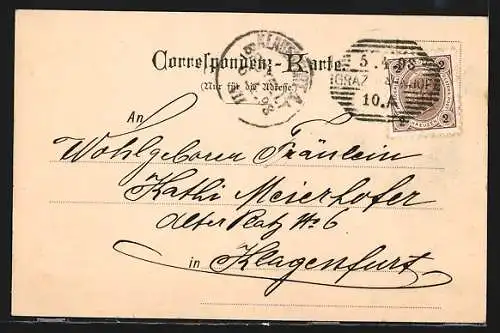 Correspondenz-Karte.
(Nur für die Adresse)
5.4.98
GRAZ
10.A
2 2
2 2
An
Wohlgeboren Fräulein
Kathi Meierhofer
Alter Platz No 6
in Klagenfurt